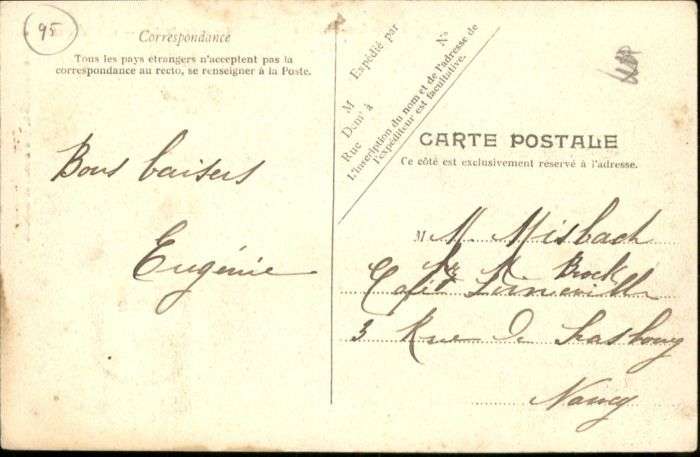 95
Correspondance
Tous les pays étrangers n'acceptent pas la
correspondance au recto, se renseigner à la Poste.
Bons baisers
Eugénie
Expédié par
M
Demt à
Rue
No
L'inscription du nom et de l'adresse de
l'expéditeur est facultative.
CARTE POSTALE
Ce côté est exclusivement réservé à l'adresse.
M M. Misbach
M. Brock
Café Luneville
3 Rue de Strasbourg
Nancy